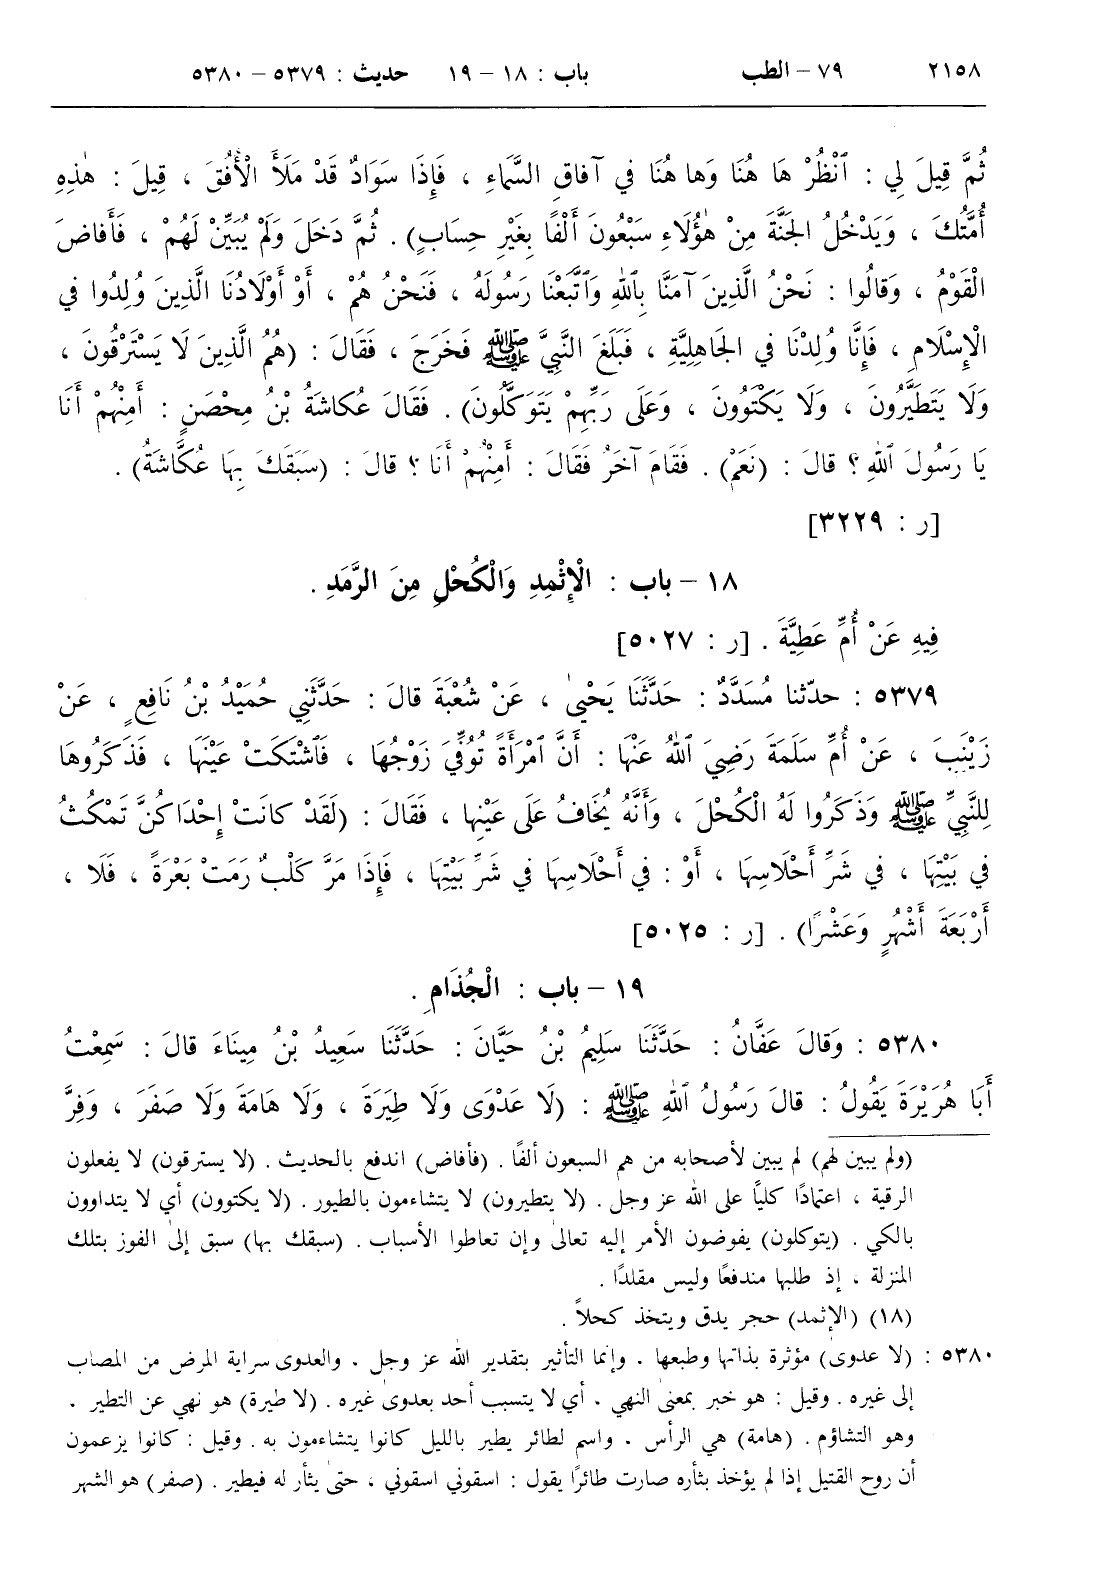 ٢١٥٨ ٧٩ – الطب باب : ١٨ – ١٩ حديث : ٥٣٧٩ – ٥٣٨٠
ثُمَّ قِيلَ لِي : ٱنْظُرْ هَا هُنَا وَها هُنَا في آفاقِ السَّمَاءِ ، فَإِذَا سَوَادٌ قَدْ مَلَأَ الْأُفُقَ ، قِيلَ : هٰذِهِ
أُمَّتُكَ ، وَيَدْخُلُ الجَنَّةَ مِنْ هٰؤُلَاءِ سَبْعُونَ أَلْفًا بِغَيْرِ حِسَابٍ) . ثُمَّ دَخَلَ وَلَمْ يُبَيِّنْ لَهُمْ ، فَأَفاضَ
الْقَوْمُ ، وَقالُوا : نَحْنُ الَّذِينَ آمَنَّا بِٱللهِ وَٱتَّبَعْنَا رَسُولَهُ ، فَنَحْنُ هُمْ ، أَوْ أَوْلَادُنَا الَّذِينَ وُلِدُوا في
الْإِسْلَامِ ، فَإِنَّا وُلِدْنَا في الجَاهِلِيَّةِ ، فَبَلَغَ النَّبِيَّ ﷺ فَخَرَجَ ، فَقَالَ : (هُمُ الَّذِينَ لَا يَسْتَرْقُونَ ،
وَلَا يَتَطَيَّرُونَ ، وَلَا يَكْتَوُونَ ، وَعَلَى رَبِّهِمْ يَتَوَكَّلُونَ) . فَقَالَ عُكاشَةُ بْنُ مِحْصَنٍ : أَمِنْهُمْ أَنَا
يَا رَسُولَ ٱللهِ ؟ قالَ : (نَعَمْ) . فَقَامَ آخَرُ فَقَالَ : أَمِنْهُمْ أَنَا ؟ قالَ : (سَبَقَكَ بِهَا عُكَّاشَةُ) .
[ر : ٣٢٢٩]
١٨ – باب : الْإِثْمِدِ وَالْكُحْلِ مِنَ الرَّمَدِ .
فِيهِ عَنْ أُمِّ عَطِيَّةَ . [ر : ٥٠٢٧]
٥٣٧٩ : حدّثنا مُسَدَّدٌ : حَدَّثَنَا يَحْيىٰ ، عَنْ شُعْبَةَ قالَ : حَدَّثَنِي حُمَيْدُ بْنُ نَافِعٍ ، عَنْ
زَيْنَبَ ، عَنْ أُمِّ سَلَمَةَ رَضِيَ ٱللهُ عَنْهَا : أَنَّ ٱمْرَأَةً تُوُفِّيَ زَوْجُهَا ، فَٱشْتَكَتْ عَيْنَهَا ، فَذَكَرُوهَا
لِلنَّبِيِّ ﷺ وَذَكَرُوا لَهُ الْكُحْلَ ، وَأَنَّهُ يُخَافُ عَلَى عَيْنِها ، فَقَالَ : (لَقَدْ كانَتْ إِحْدَاكُنَّ تَمْكُثُ
في بَيْتِهَا ، في شَرِّ أَحْلَاسِهَا ، أَوْ : في أَحْلَاسِهَا في شَرِّ بَيْتِهَا ، فَإِذَا مَرَّ كَلْبٌ رَمَتْ بَعْرَةً ، فَلَا ،
أَرْبَعَةَ أَشْهُرٍ وَعَشْرًا) . [ر : ٥٠٢٥]
١٩ – باب : الْجُذَامِ .
٥٣٨٠ : وَقالَ عَفَّانُ : حَدَّثَنَا سَلِيمُ بْنُ حَيَّانَ : حَدَّثَنَا سَعِيدُ بْنُ مِينَاءَ قالَ : سَمِعْتُ
أَبَا هُرَيْرَةَ يَقُولُ : قالَ رَسُولُ ٱللهِ ﷺ : (لَا عَدْوَى وَلَا طِيَرَةَ ، وَلَا هَامَةَ وَلَا صَفَرَ ، وَفِرَّ
(ولم يبين لهم) لم يبين لأصحابه من هم السبعون ألفًا . (فأفاض) اندفع بالحديث . (لا يسترقون) لا يفعلون
الرقية ، اعتمادًا كليًا على الله عز وجل . (لا يتطيرون) لا يتشاءمون بالطيور . (لا يكتوون) أي لا يتداوون
بالكي . (يتوكلون) يفوضون الأمر إليه تعالىٰ وإن تعاطوا الأسباب . (سبقك بها) سبق إلىٰ الفوز بتلك
المنزلة ، إذ طلبها مندفعًا وليس مقلدًا .
(١٨) (الإثمد) حجر يدق ويتخذ كحلاً .
٥٣٨٠ : (لا عدوى) مؤثرة بذاتها وطبعها . وإنما التأثير بتقدير الله عز وجل . والعدوى سراية المرض من المصاب
إلى غيره . وقيل : هو خبر بمعنىٰ النهي . أي لا يتسبب أحد بعدوىٰ غيره . (لا طيرة) هو نهي عن التطير .
وهو التشاؤم . (هامة) هي الرأس . واسم لطائر يطير بالليل كانوا يتشاءمون به . وقيل : كانوا يزعمون
أن روح القتيل إذا لم يؤخذ بثأره صارت طائرًا يقول : اسقوني اسقوني ، حتىٰ يثأر له فيطير . (صفر) هو الشهر